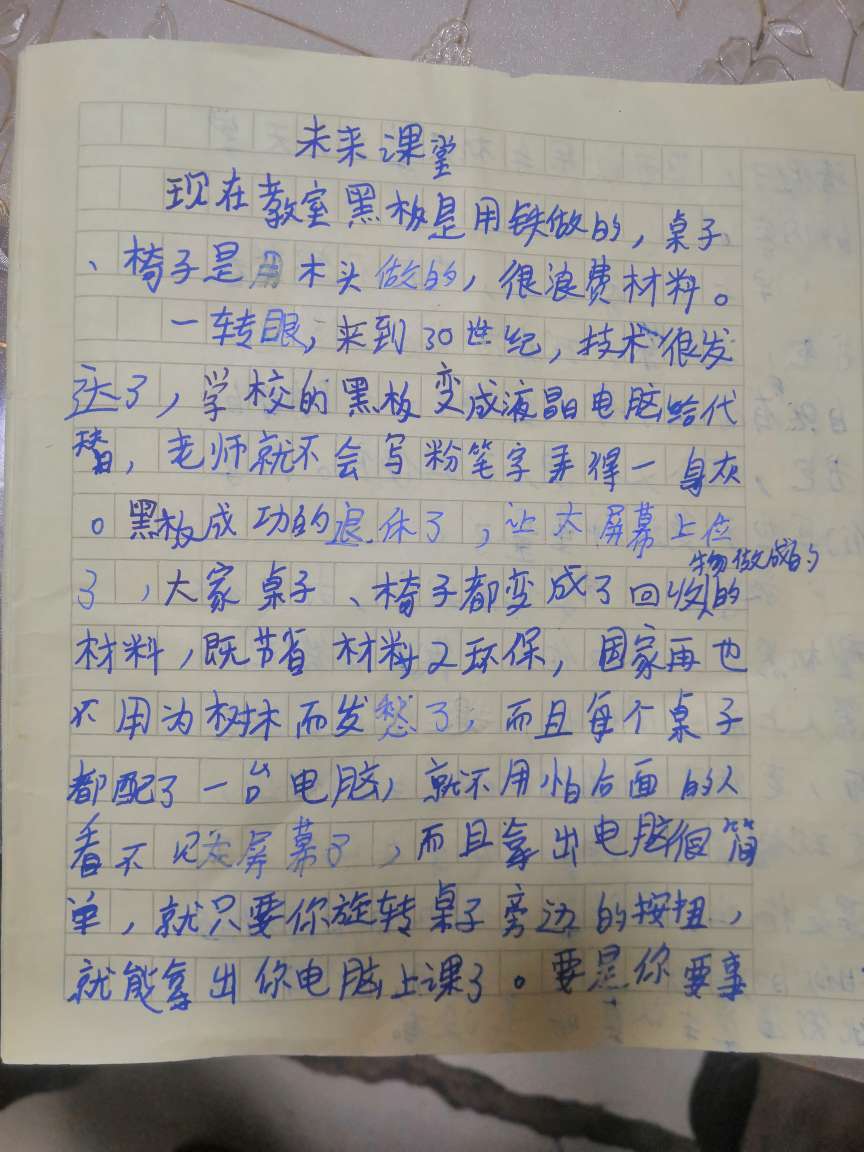 未来课堂
现在教室黑板是用铁做的，桌子
、椅子是用木头做的，很浪费材料。
一转眼，来到30世纪，技术很发
达了，学校的黑板变成液晶电脑给代
替，老师就不会写粉笔字弄得一身灰
。黑板成功的退休了，让大屏幕上位
物做成的
了，大家桌子、椅子都变成了回收的
材料，既节省材料又环保，国家再也
不用为树林而发愁了，而且每个桌子
都配了一台电脑，就不用怕后面的人
看不见大屏幕了，而且拿出电脑很简
单，就只要你旋转桌子旁边的按扭，
就能拿出你电脑上课了。要是你要事